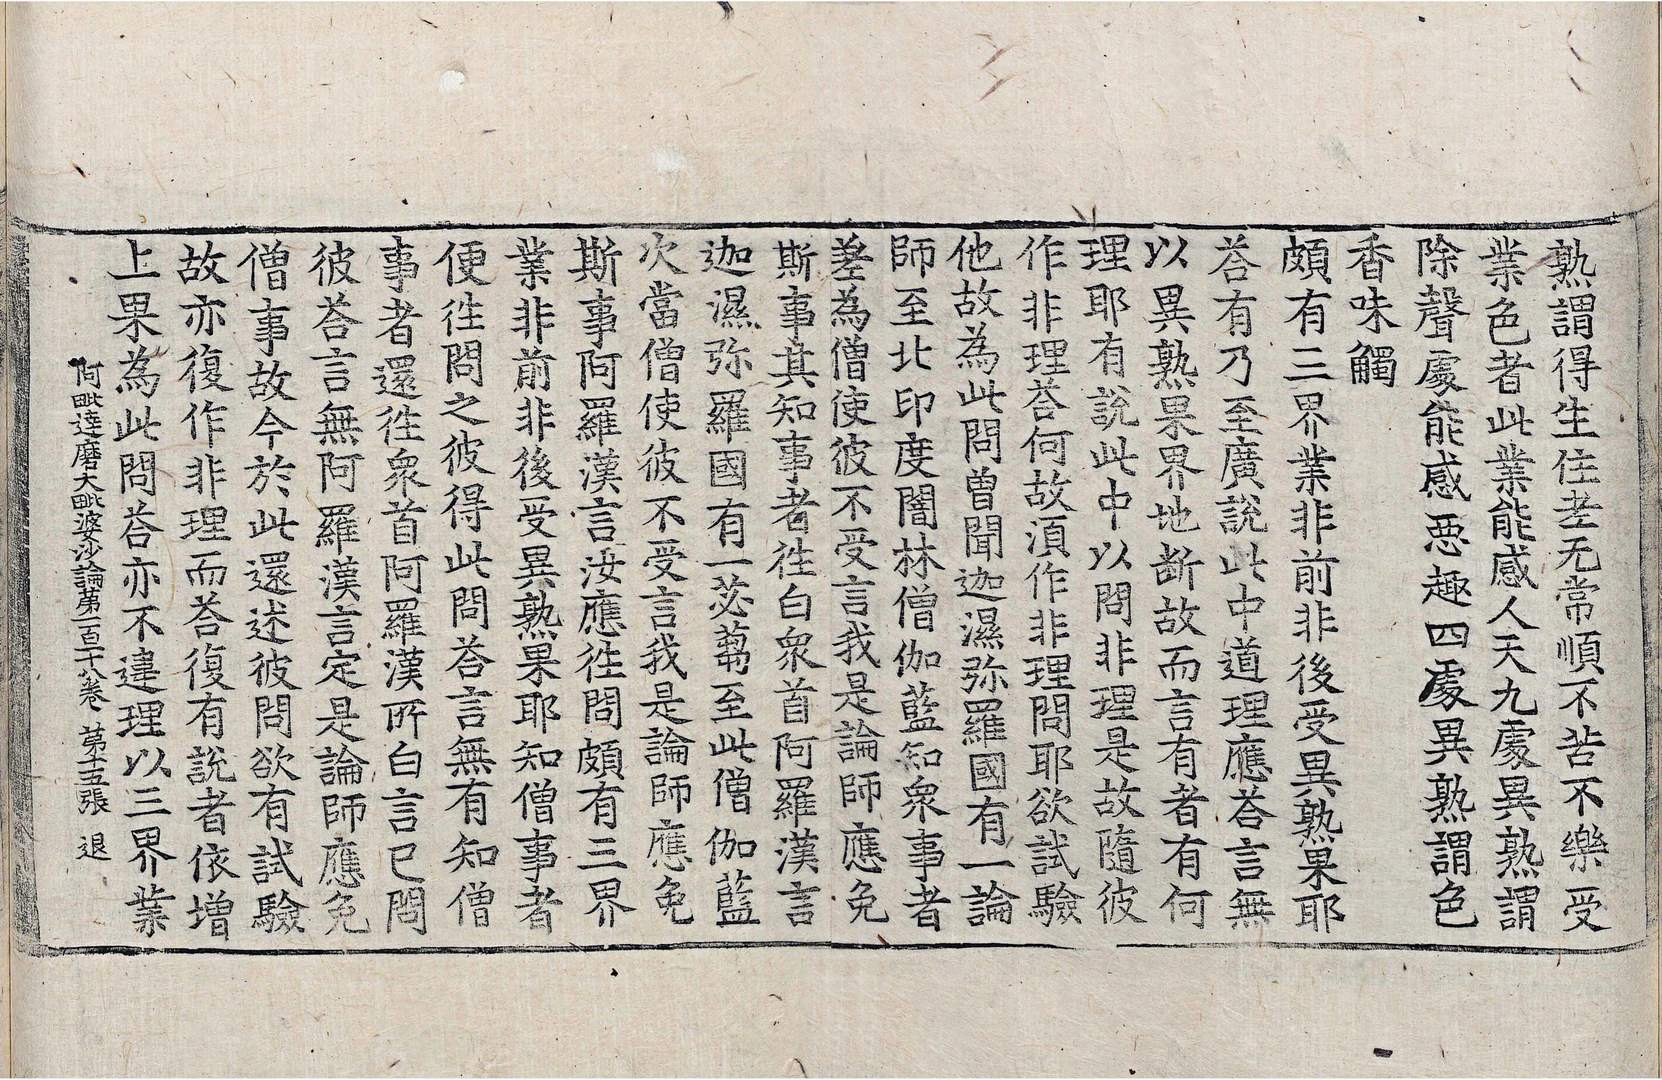 熟謂得生住老无常順不苦不樂受
業色者此業能感人天九處異熟謂
除聲處能感惡趣四處異熟謂色
香味觸
頗有三界業非前非後受異熟果耶
荅有乃至廣說此中道理應荅言無
以異熟果界地斷故而言有者有何
理耶有說此中以問非理是故隨彼
作非理荅何故湏作非理問耶欲試驗
他故為此問曾聞迦濕弥羅國有一論
師至北印度闇林僧伽藍知衆事者
差為僧使彼不受言我是論師應免
斯事其知事者徃白衆首阿羅漢言
迦濕弥羅國有一苾蒭至此僧伽藍
次當僧使彼不受言我是論師應免
斯事阿羅漢言汝應徃問頗有三界
業非前非後受異熟果耶知僧事者
便徃問之彼得此問荅言無有知僧
事者還徃衆首阿羅漢所白言已問
彼荅言無阿羅漢言定是論師應免
僧事故今於此還述彼問欲有試驗
故亦復作非理而荅復有說者依增
上果為此問荅亦不違理以三界業
阿毗達磨大毗婆沙論第一百一十八卷 第十五張 退